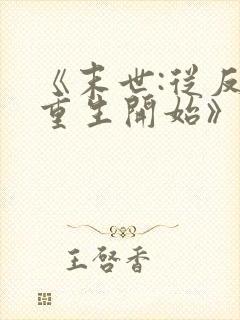 《末世:從反
重生開始》
王啓香